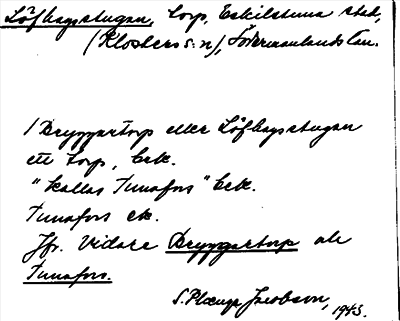 Löfhagsstugan, torp, Eskilstuna stad,
(Klosters s:n), Södermanlands län.
/ Bryggartorp eller Löfhagsstugan
ett torp, bek.
"kallas Tunafors" bek.
Tunafors ek.
Jfr. vidare Bryggartorp och
Tunafors.
S. Jacobson, 1943.